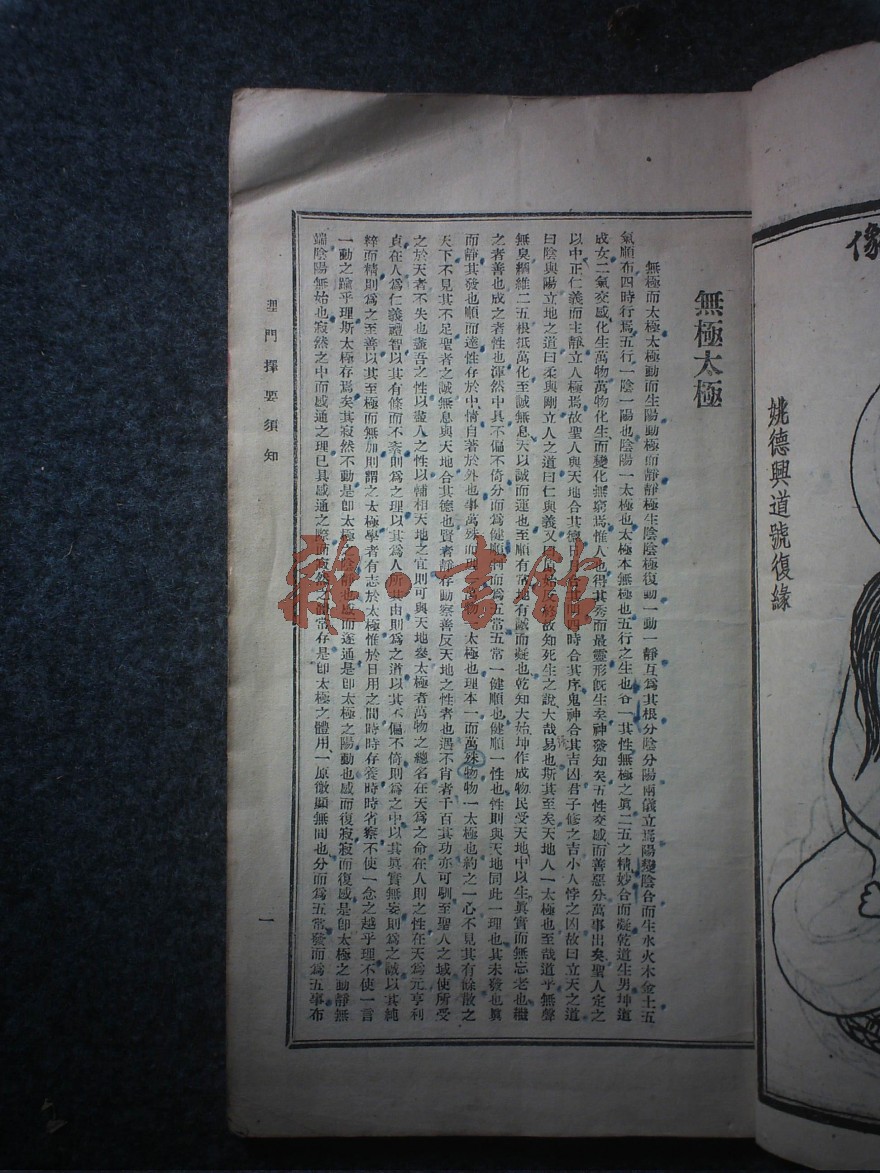 像
姚德興道號復緣
無極太極
無極而太極太極動而生陽動極而靜靜極生陰陰極復動一動一靜互為其根分陰分陽兩儀立焉陽變陰合而生水火木金土五
氣順布四時行焉五行一陰一陽也陰陽一太極也太極本無極也五行之生也各一其性無極之眞二五之精妙合而凝乾道生男坤道
成女二氣交感化生萬物萬物化生而變化無窮焉惟人也得其秀而最靈形旣生矣神發知矣五性交感而善惡分萬事出矣聖人定之
以中正仁義而主靜立人極焉故聖人與天地合其德日月合其明四時合其序鬼神合其吉凶君子修之吉小人悖之凶故曰立天之道
曰陰與陽立地之道曰柔與剛立人之道曰仁與義又曰原始反終故知死生之說大哉易也斯其至矣天地人一太極也至哉道乎無聲
無臭綱維二五根柢萬化至誠無息天以誠而運也至順有常地有誠而凝也乾知大始坤作成物民受天地中以生眞實而無忘老也繼
之者善也成之者性也渾然中具不偏不倚分而為健順而為五常五常一健順也健順一性也性則與天地同此一理也其未發也眞
而靜其發也順而達性存於中情自著於外也事萬殊而理一萬物一太極也理本一而萬殊物物一太極也約之一心不見其有餘散之
天下不見其不足聖者之誠無息與天地合其德也賢者靜存動察善反天地之性者也遇不肖者千百其功亦可馴至聖人之域使所受
之於天者不失也盡吾之性以盡人之性以輔相天地之宜則可與天地參太極者萬物之總名在天為之命在人則之性在天為元亨利
貞在人為仁義禮智以其有條而不紊則為之理以其為人所共由則為之道以其不偏不倚則為之中以其眞實無妄則為之誠以其純
粹而精則為之至善以其至極而無加則謂之太極學者有志於太極惟於日用之間時時存養時時省察不使一念之越乎理不使一言
一動之踰乎理斯太極存焉矣其寂然不動是卽太極之陰靜也感而遂通是卽太極之陽動也感而復寂寂而復感是卽太極之動靜無
端陰陽無始也寂然之中而感通之理已具感通之際而寂然之體常存是卽太極之體用一原微顯無間也分而為五常發而為五事布
理門擇要須知
一
雜·書館